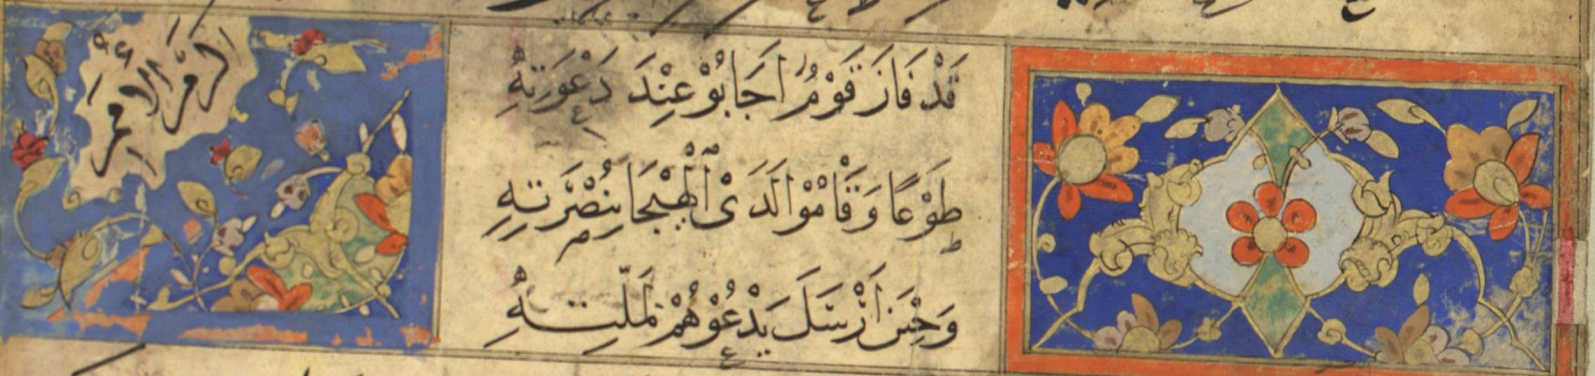 قَدْ فَازَ قَوْمٌ أَجَابُوْ عِنْدَ دَعْوَتِهِ
طَوْعًا وَقَامُوْا لَدَى الْهَيْجَا بِنُصْرَتِهِ
وَحِيْنَ أَرْسَلَ يَدْعُوْهُمْ لِمَلَّتِهِ